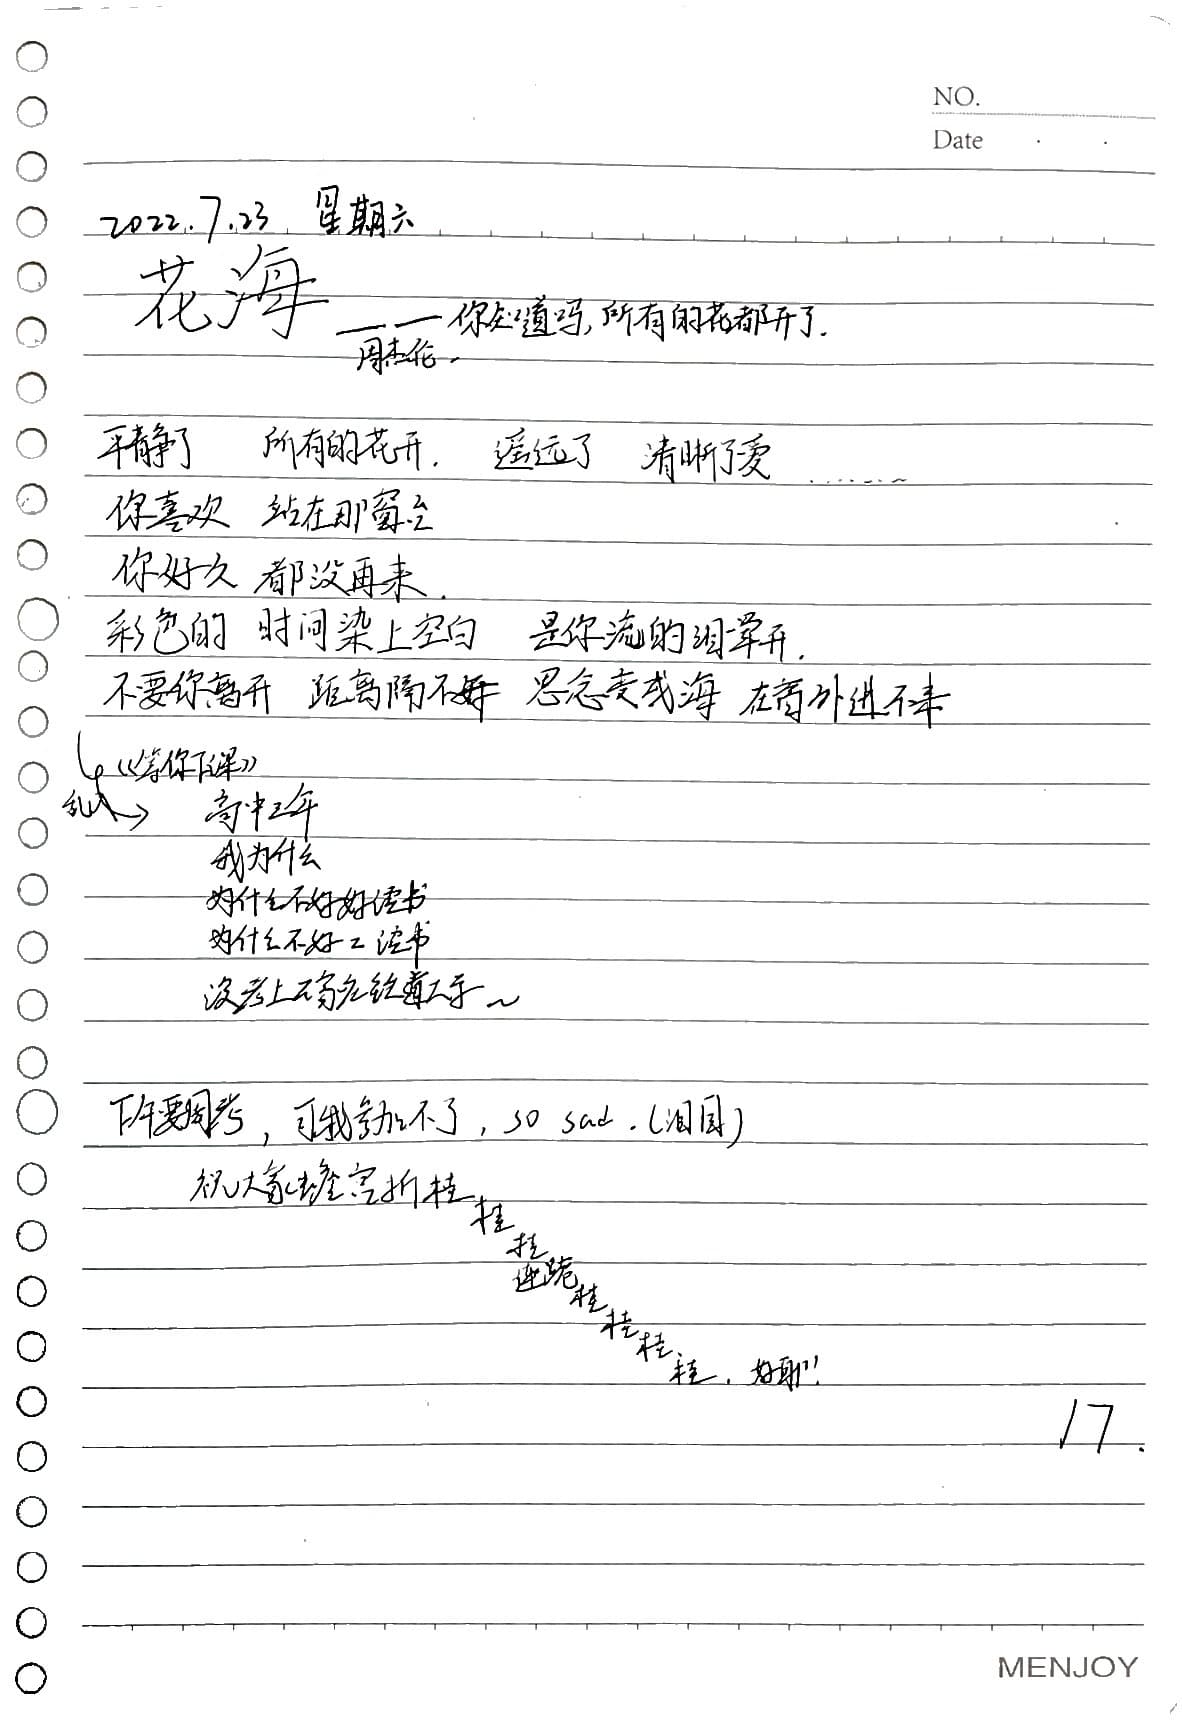 NO.
Date
2022.7.23 星期六
花海
——你知道吗,所有的花都开了.
周杰伦.
平静了 所有的花开. 遥远了 清晰了爱 ......~
你喜欢 站在那窗台
你好久 都没再来.
彩色的 时间染上空白 是你流的泪晕开.
不要你离开 距离隔不开 思念变成海 在窗外进不来
《等你下课》
乱入→ 高中三年
我为什么
为什么不好好读书
为什么不好好读书
没考上
下午要周考, 可我参加不了, so sad.(泪目)
祝大家蟾宫折桂
桂
桂
连跪
桂
桂
桂
桂. 好耶!!
17.
MENJOY